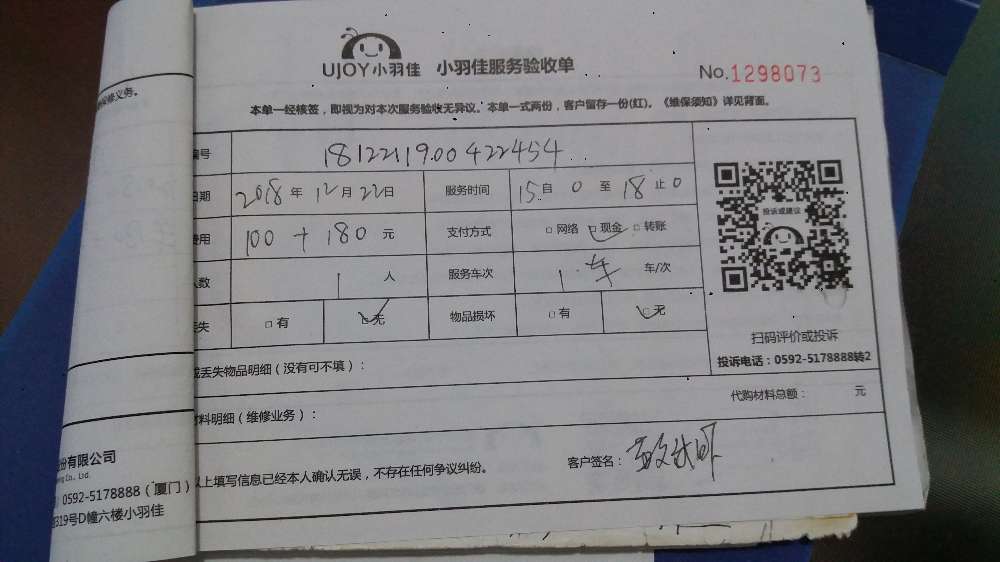 UJOY小羽佳 小羽佳服务验收单
No.1298073
本单一经核签，即视为对本次服务验收无异议。本单一式两份，客户留存一份(红)。《维保须知》详见背面。
编号 1812211900422454
日期 2018年12月22日 服务时间 15自0至18止0
费用 100+180元 支付方式 □网络 □现金 □转账
人数 1人 服务车次 1.车 车/次
丢失 □有 □无 物品损坏 □有 □无
投诉或建议
扫码评价或投诉
投诉电话：0592-5178888转2
或丢失物品明细（没有可不填）：
材料明细（维修业务）：
代购材料总额： 元
以上填写信息已经本人确认无误，不存在任何争议纠纷。
客户签名：
保修义务。
份有限公司
Co., Ltd.
0592-5178888（厦门）
319号D幢六楼小羽佳